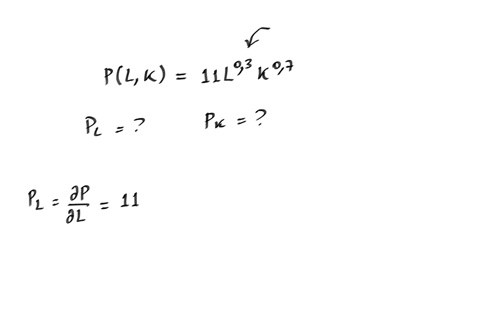 P(L,K) = 11L^0,3 K^0,7
P_L = ? P_K = ?
P_L = ∂P/∂L = 11